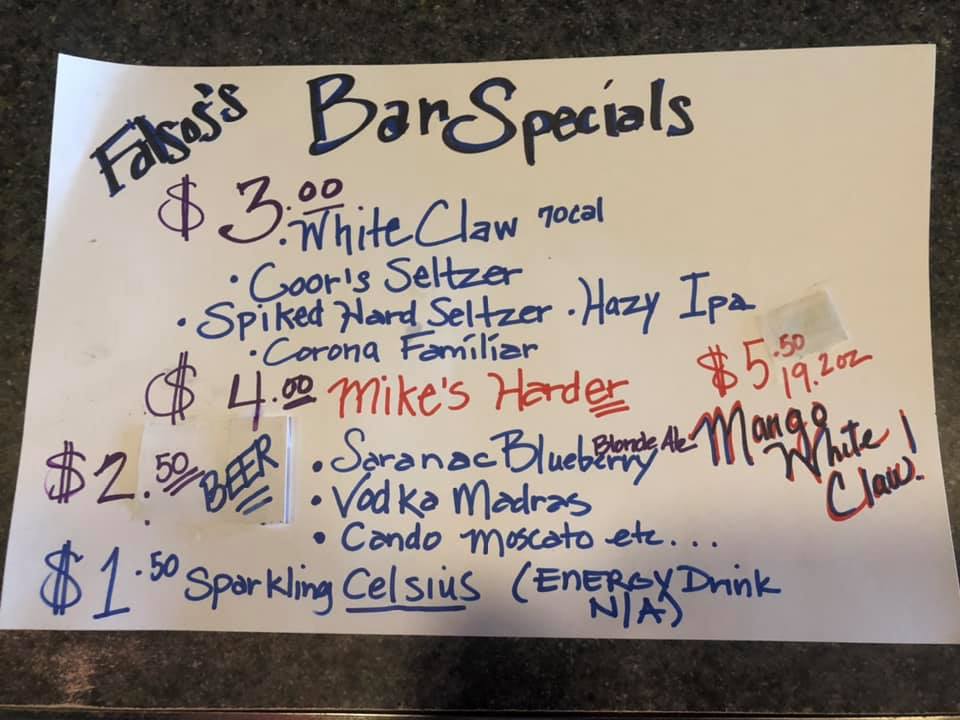 Falso's's Bar Specials
$3.00
• White Claw 70cal
• Coor's Seltzer
• Spiked Hard Seltzer • Hazy Ipa
• Corona Familiar
$4.00 Mike's Harder
$5.50 19.2oz
Mango White Claw!
$2.50 BEER
• Saranac Blueberry Blonde Ale
• Vodka Madras
• Cando Moscato etc...
$1.50 Sparkling Celsius (ENERGY Drink
N/A)